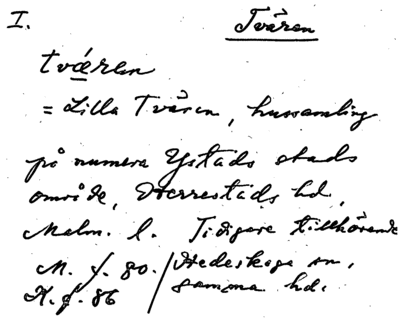 I. Tvären
tvæ̀ren
= Lilla Tvären, hussamling
på numera Ystads stads
område, Herrestads hd,
Malm. l. Tidigare tillhörande
M. f. 80. / Hedeskoga sn,
K. f. 86 / samma hd.